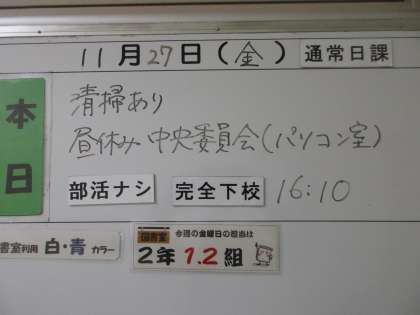 11月27日(金) 通常日課
本日
清掃あり
昼休み 中央委員会(パソコン室)
部活ナシ 完全下校 16:10
書室利用 白・青 カラー
図書室 今週の金曜日の担当は
2年 1.2 組